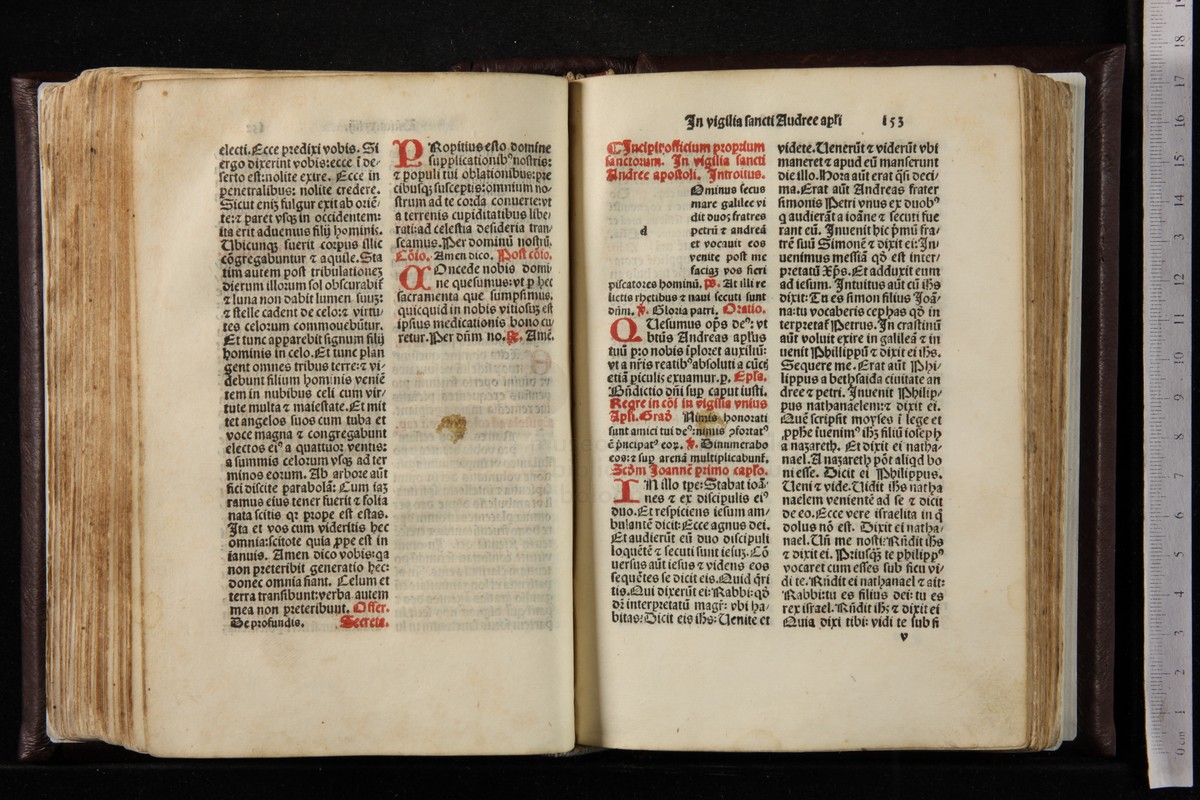 electi. Ecce predixi vobis. Si
ergo dixerint vobis: ecce ī de-
serto est: nolite exire. Ecce in
penetralibus: nolite credere.
Sicut eniȝ fulgur exit ab oriē-
te: ⁊ paret vsqȝ in occidentem:
ita erit aduentus filij hominis.
Ubicunqȝ fuerit corpus illic
cōgregabuntur ⁊ aquile. Sta
tim autem post tribulationeȝ
dierum illorum sol obscurabit̄
⁊ luna non dabit lumen suuȝ:
⁊ stelle cadent de celo: ⁊ virtu-
tes celorum commouebūtur.
Et tunc apparebit signum filij
hominis in celo. Et tunc plan
gent omnes tribus terre: ⁊ vi-
debunt filium hominis veniē
tem in nubibus celi cum vir-
tute multa ⁊ maiestate. Et mit
tet angelos suos cum tuba et
voce magna ⁊ congregabunt
electos eiꝰ a quattuor ventis:
a summis celorum vsqȝ ad ter
minos eorum. Ab arbore aūt
fici discite parabolā: Cum iaȝ
ramus eius tener fuerit ⁊ folia
nata scitis qꝛ prope est estas.
Ita et vos cum videritis hec
omnia: scitote quia ꝓpe est in
ianuis. Amen dico vobis: qa
non preteribit generatio hec:
donec omnia fiant. Celum et
terra transibunt: verba autem
mea non preteribunt. Offer.
De profundis. Secreta.
PRopitius esto domine
supplicationibꝰ nostris:
⁊ populi tui oblationibus: pre
cibusqȝ susceptis: omnium no-
strum ad te corda conuerte: vt
a terrenis cupiditatibus libe
rati: ad celestia desideria tran-
seamus. Per dominū nostrū.
Cōio. Amen dico. Post cōio.
COncede nobis domi-
ne quesumus: vt ꝑ hec
sacramenta que sumpsimus.
quicquid in nobis vitiosuȝ est
ipsius medicationis bono cu
retur. Per dūm no. ℟. Amē.
In vigilia sancti Andree apl̄i 153
⸿Incipit officium proprium
sanctorum. In vigilia sancti
Andree apostoli. Introitus.
d
Ominus secus
mare galilee vi
dit duos fratres
petrū ⁊ andreā
et vocauit eos
venite post me
faciaȝ vos fieri
piscatores hominū. ps. At illi re
lictis rhetibus ⁊ naui secuti sunt
dūm. ℣. Gloria patri. Oratio.
QUesumus op̄s deꝰ: vt
btūs Andreas apl̄us
tuū pro nobis īploret auxiliū:
vt a nr̄is reatibꝰ absoluti a cūctȝ
etiā piculis exuamur. p. Epl̄a.
Bn̄dictio dn̄i sup caput iusti.
Reqre in cōi in vigilia vnius
Apl̄i. Grad̄ Nimis honorati
sunt amici tui deꝰ: nimis ꝯfortatꝰ
ē ṗncipatꝰ eoꝝ. ℣. Dinumerabo
eos: ⁊ sup arenā multiplicabunt̄.
Scd̄m Joannē primo capl̄o.
IN illo tp̄e: Stabat ioā-
nes ⁊ ex discipulis eiꝰ
duo. Et respiciens iesum am-
bulantē dicit: Ecce agnus dei.
Et audierūt eū duo discipuli
loquētē ⁊ secuti sunt iesuȝ. Cō
uersus aūt iesus ⁊ videns eos
sequētes se dicit eis. Quid q̄ri
tis. Qui dixerūt ei: Rabbi: qd̄
dr̄ interpretatū magr̄: vbi ha-
bitas: Dicit eis ih̄s: Uenite et
videte. Uenerūt ⁊ viderūt vbi
maneret ⁊ apud eū manserunt
die illo. Hora aūt erat q̄si deci-
ma. Erat aūt Andreas frater
simonis Petri vnus ex duobꝰ
q audierāt a ioāne ⁊ secuti fue
rant eū. Inuenit hic ṗmū fra-
trē suū Simonē ⁊ dixit ei: In-
uenimus messiā qd̄ est inter-
pretatū Xp̄s. Et adduxit eum
ad iesum. Intuitus aūt eū ih̄s
dixit: Tu es simon filius Joā-
na: tu vocaberis cephas qd̄ in
terpretat̄ Petrus. In crastinū
aūt voluit exire in galileā ⁊ in
uenit Philippū ⁊ dixit ei ih̄s.
Sequere me. Erat aūt Phi-
lippus a bethsaida ciuitate an
dree ⁊ petri. Inuenit Philip-
pus nathanaelem: ⁊ dixit ei.
Quē scripsit moyses ī lege et
ꝓphe īuenimꝰ ih̄ȝ filiū ioseph
a nazareth. Et dixit ei natha-
nael. A nazareth pōt aliqd bo
ni esse. Dicit ei Philippus.
Ueni ⁊ vide. Uidit ih̄s natha
naelem venientē ad se ⁊ dicit
de eo. Ecce vere israelita in q̄
dolus nō est. Dixit ei natha-
nael. Un̄ me nosti: Rn̄dit ih̄s
⁊ dixit ei. Priusqȝ te philippꝰ
vocaret cum esses sub ficu vi-
di te. Rn̄dit ei nathanael ⁊ ait:
Rabbi: tu es filius dei: tu es
rex israel. Rn̄dit ih̄s: ⁊ dixit ei
Quia dixi tibi: vidi te sub fi
v